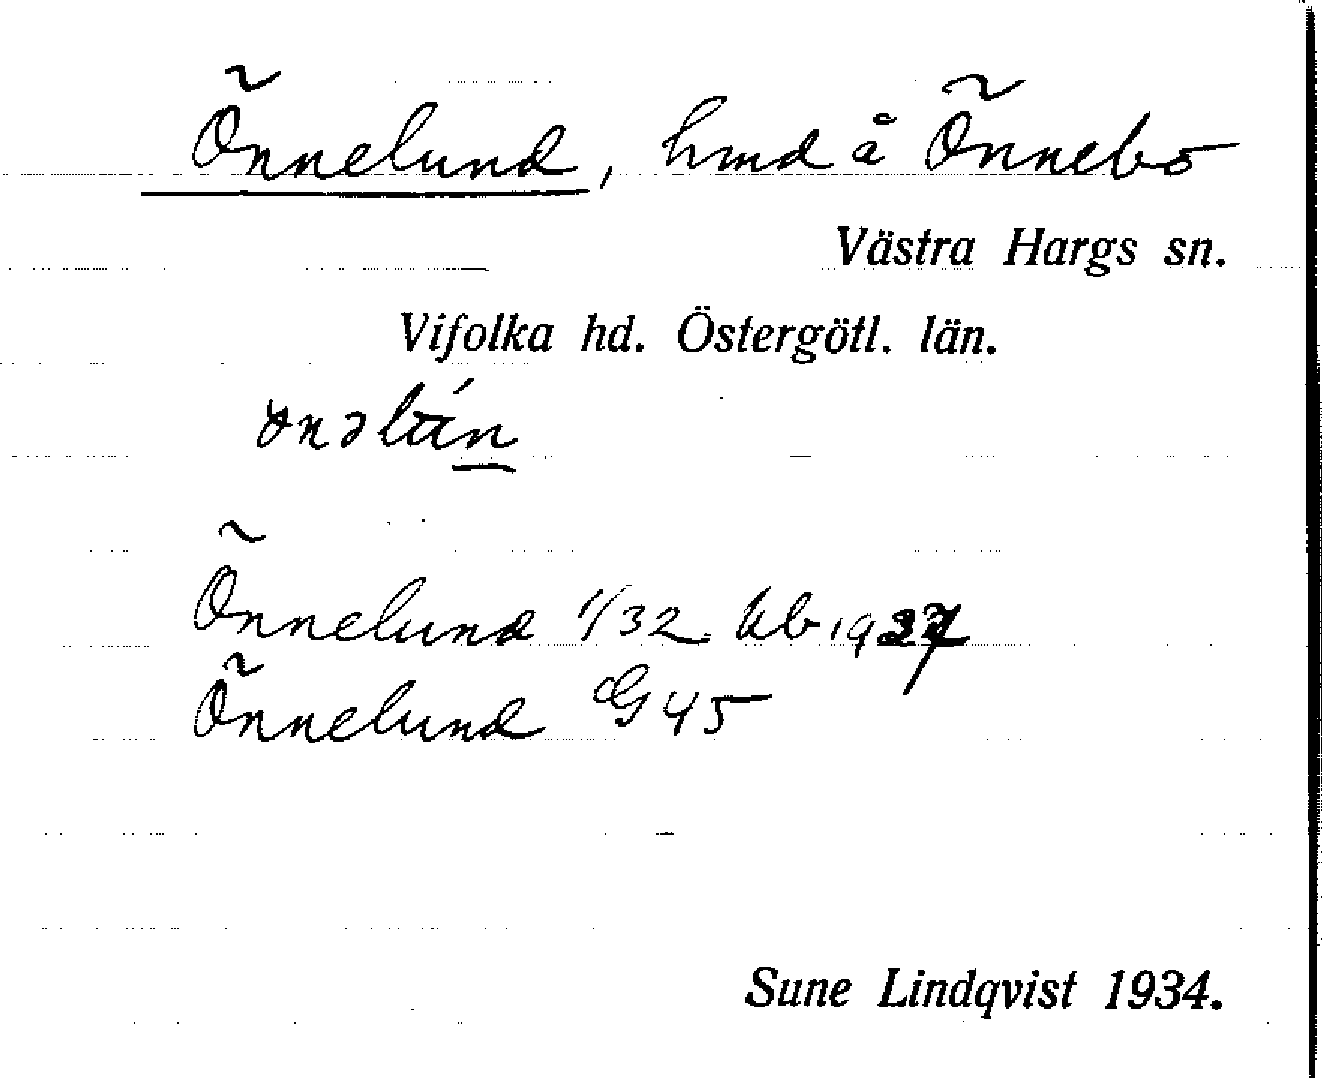 Önnelund, hmd å Önnebo
Västra Hargs sn.
Vifolka hd. Östergötl. län.
Önnelund 1/32 kb 1927
Önnelund G 45
Sune Lindqvist 1934.